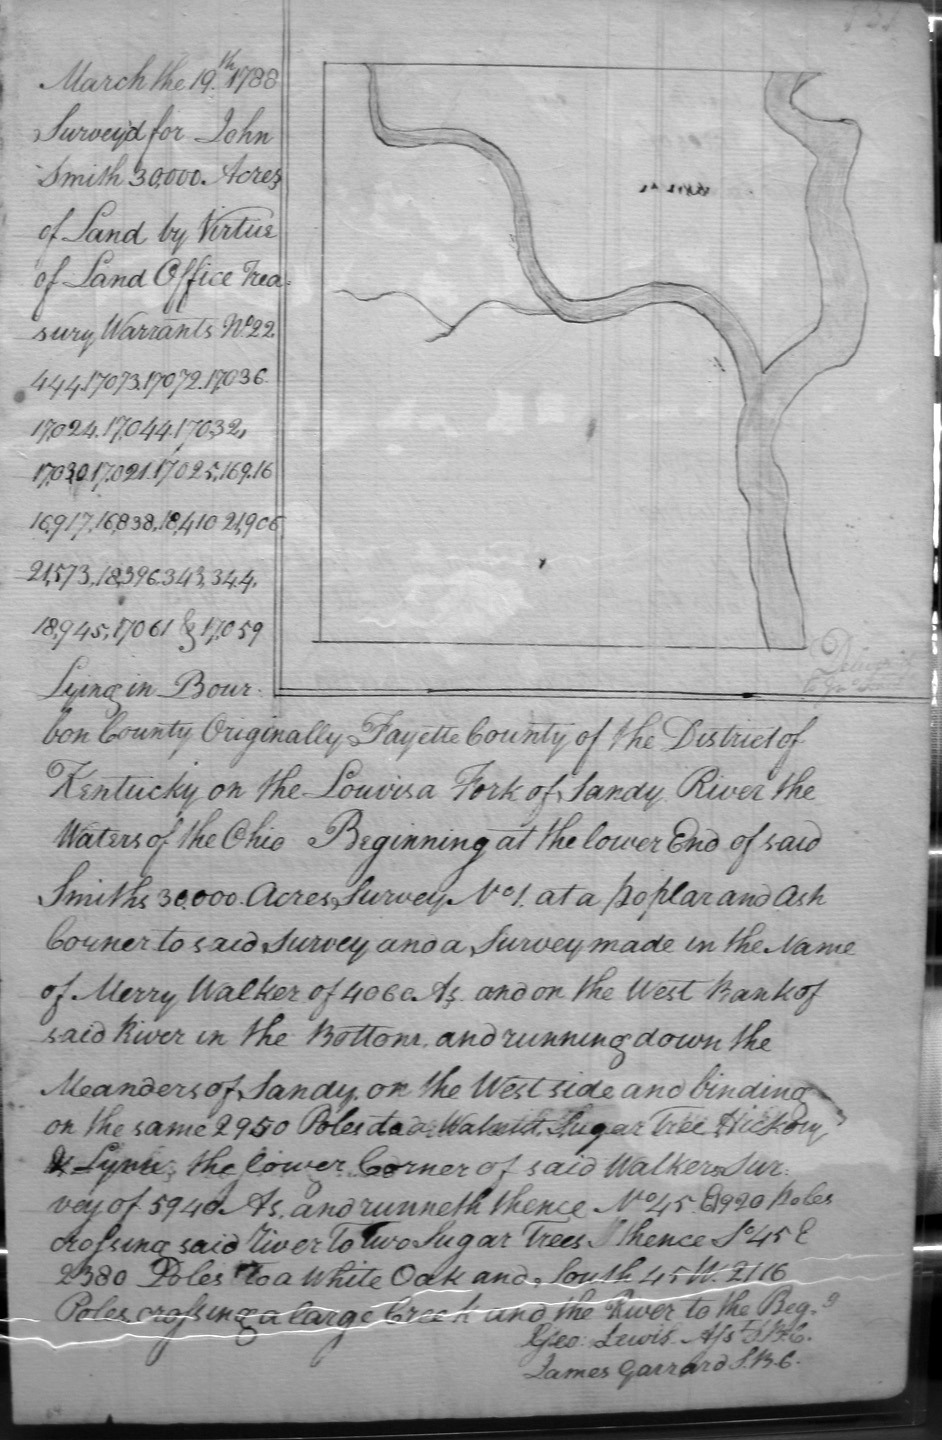 March the 19.th 1788
Survey'd for John
Smith 30,000. Acres
of Land by Virtue
of Land Office Trea-
sury Warrants No. 22.
444.17073.17072.17,036.
17,024.17,044.17,032,
17,030.17,021.17025,169.16
16,917,16,838,18,410 21,906
21,573,18,396.343,344.
18,945,17061 & 17,059
Lying in Bour-
bon County Originally Fayette County of the District of
Kentucky on the Louvisa Fork of Sandy River the
Waters of the Ohio Beginning at the lower End of said
Smiths 30,000. Acres Survey No 1. at a poplar and Ash
Corner to said Survey and a Survey made in the Name
of Merry Walker of 4060 As. and on the West Bank of
said River in the Bottom, and running down the
Meanders of Sandy, on the West side and binding
on the same 2950 Poles to a Walnutt, Sugar Tree Hickory
& Lynn, the lower Corner of said Walkers Sur-
vey of 5940 As. and runneth thence No 45 E 1920 poles
crossing said River To Two Sugar Trees Thence So 45 E
2380 Poles To a White Oak and, South 45 W. 2116
Poles crossing a large Creek and the River to the Beg.g
Geo. Lewis. Asst S.B.C.
James Garrard S.B.C.